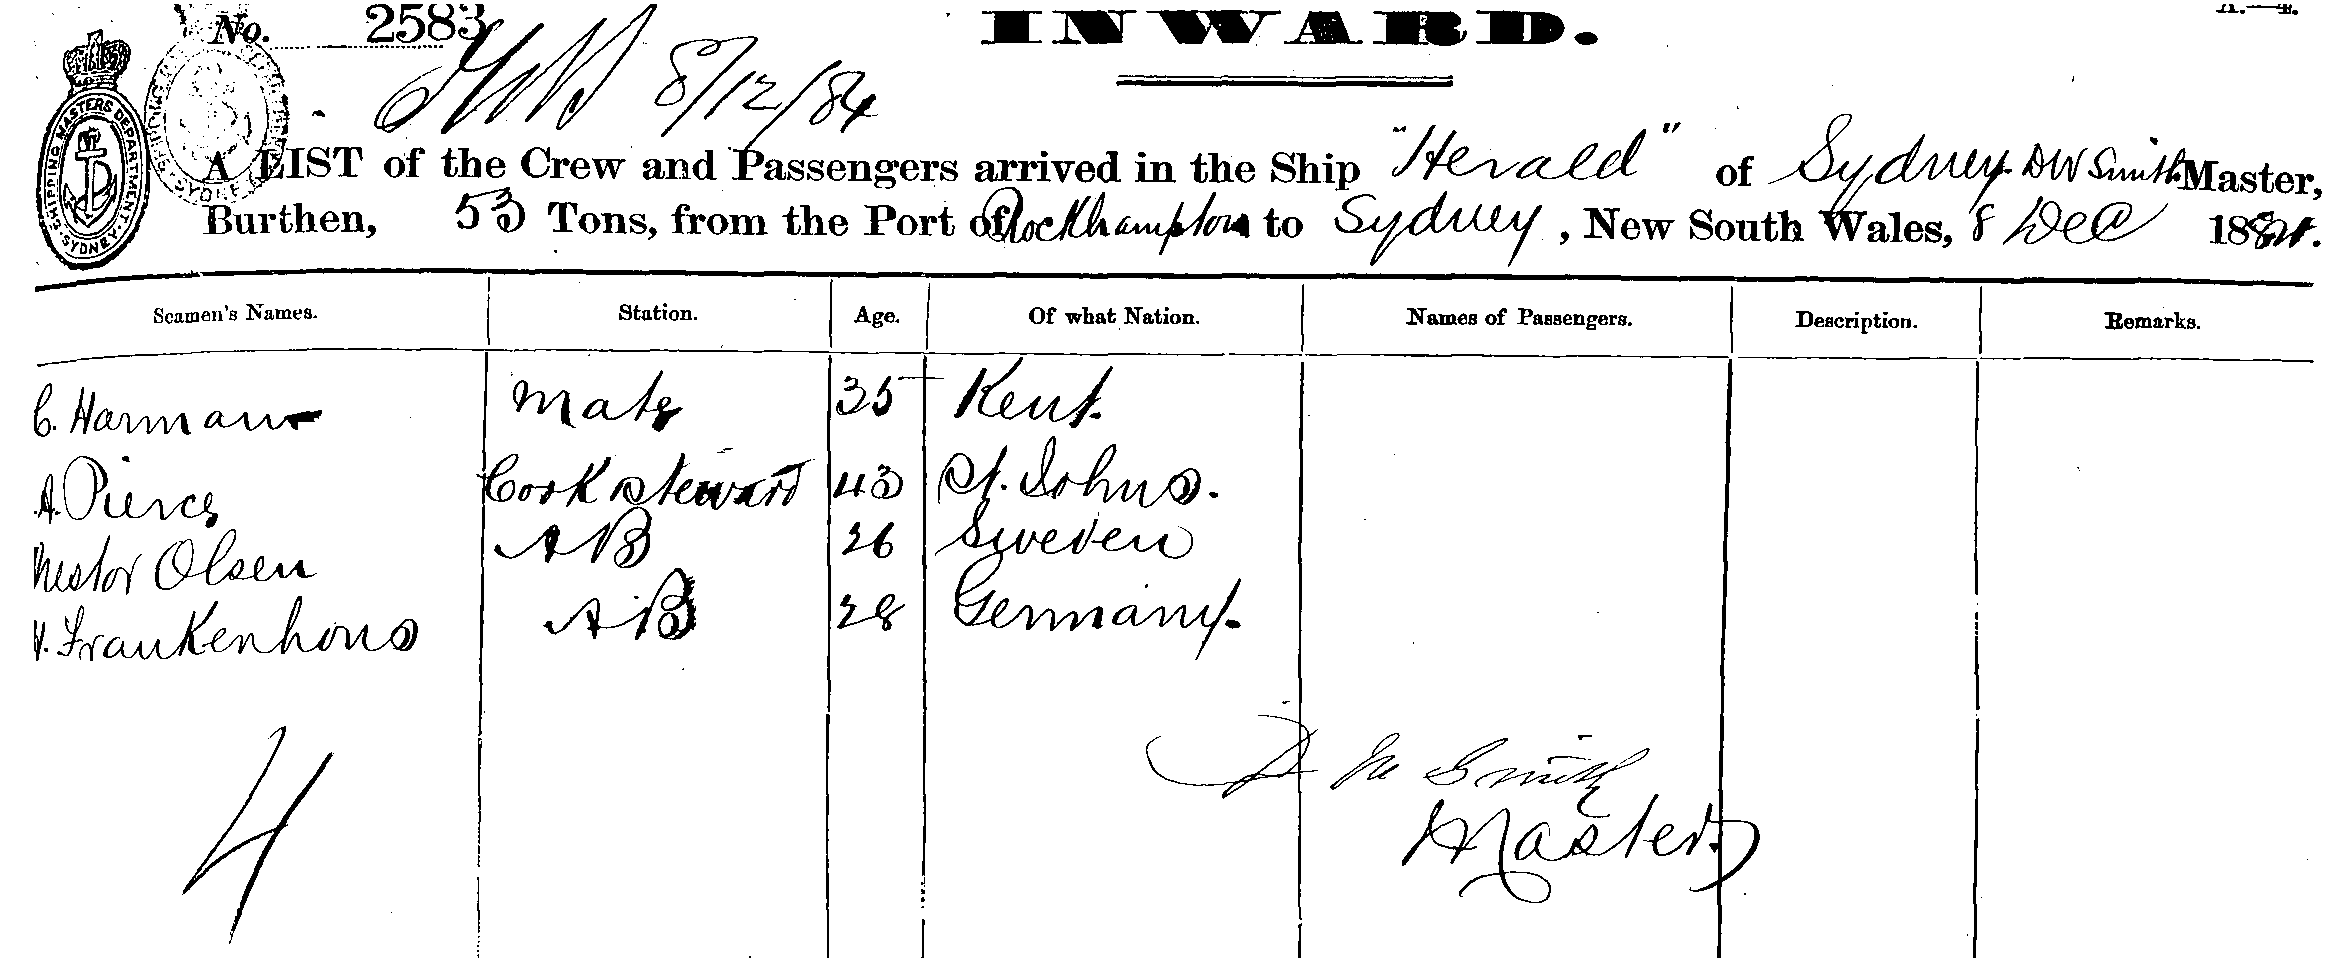 No. 2583
INWARD.
8/12/84
SHIPPING MASTERS DEPARTMENT. SYDNEY.
A LIST of the Crew and Passengers arrived in the Ship "Herald" of Sydney DW Smith Master,
Burthen, 53 Tons, from the Port of Rockhampton to Sydney, New South Wales, 8 Dec 1884.
Seamen's Names. Station. Age. Of what Nation. Names of Passengers. Description. Remarks.
C. Harman Mate 35 Kent.
A. Pierce Cook Steward 43 St. Johns.
Nestor Olsen AB 26 Sweden
Frankenhous AB 28 Germany.
4
D W Smith
Master